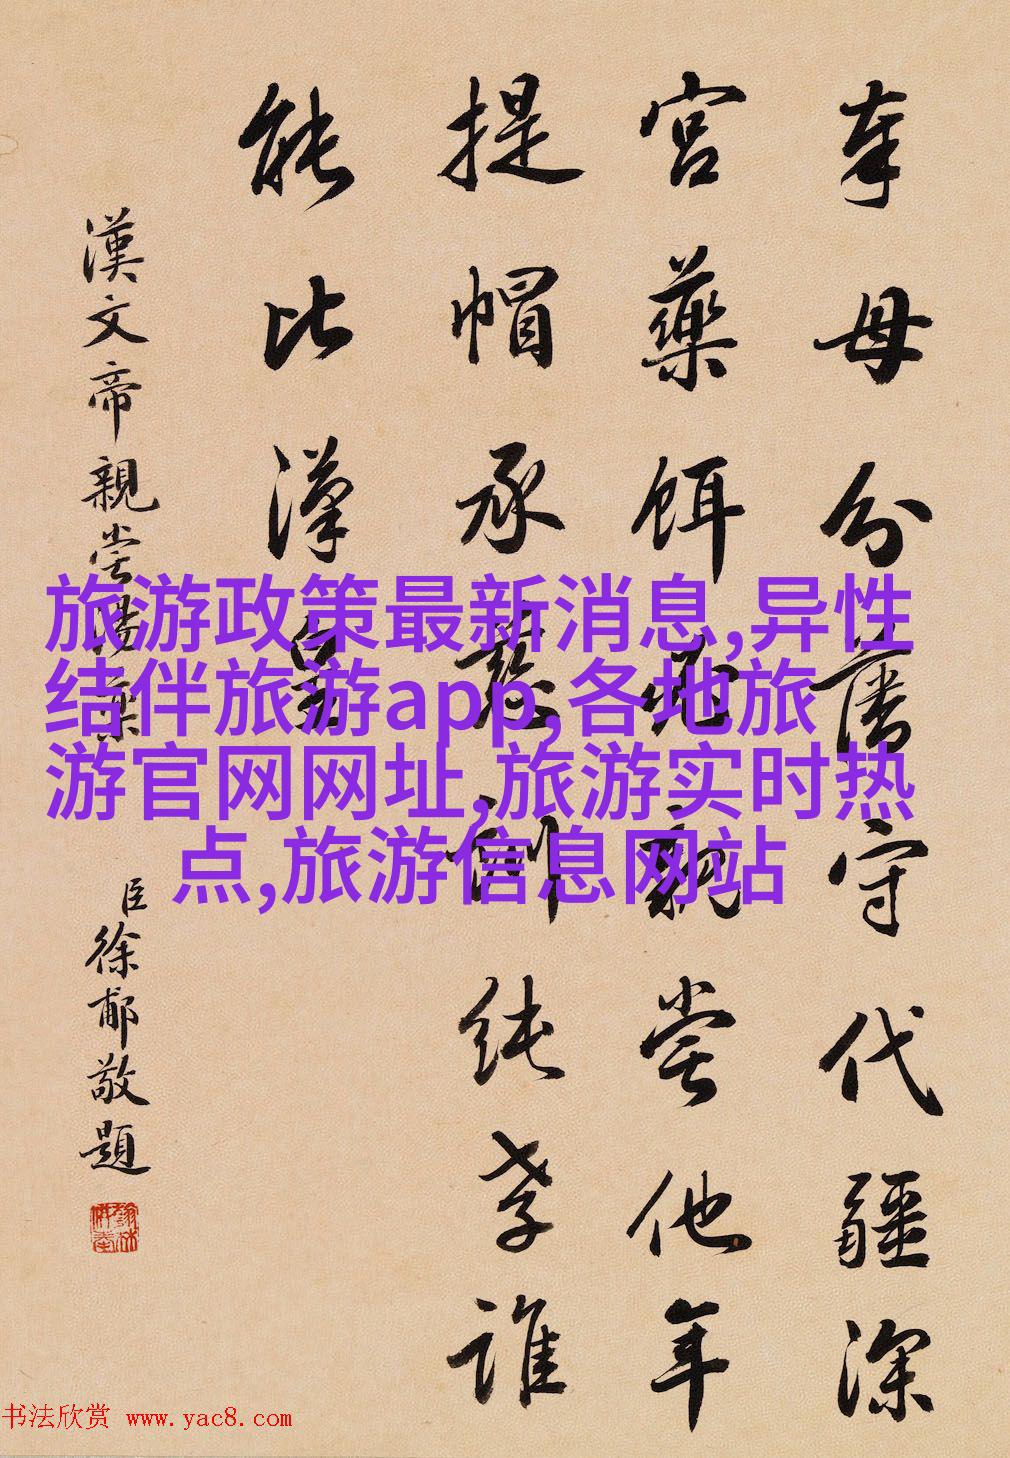 奉母分藩守代疆深
宫藥餌必親嘗他年
提帽承慈訓純孝誰
能比漢皇
漢文帝親嘗湯藥
臣徐郙敬題
旅游政策最新消息,异性
结伴旅游app,各地旅
游官网网址,旅游实时热
点,旅游信息网站
书法欣赏 www.yac8.com